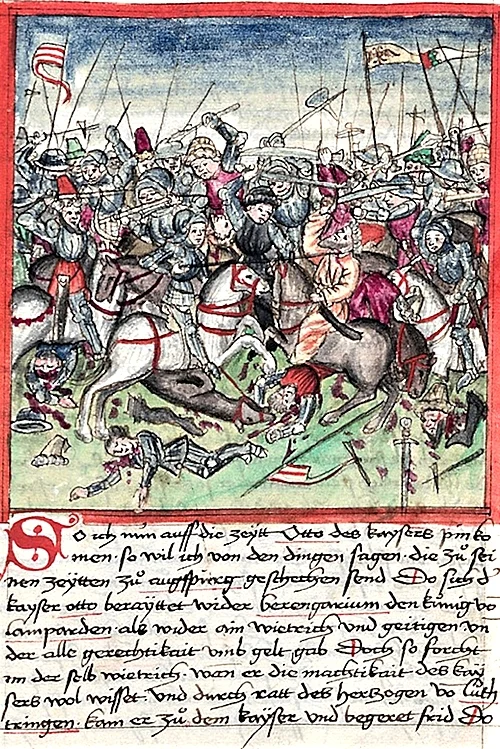 So ich nun auff die zeytt Otto des kaysers pin ko
men · so wil ich von den dingen sagen · die zů sei
nen zeytten zů augspurg geschechen send Do sich d
kayser otto berayttet wider berengarium den künig vō
lamparden · als wider ain wietrich vnd geitigen vn
der alle gerechtikait vmb gelt gab Doch so forcht
im der selb wietrich · wan er die machtikait des kay
sers wol wisset · vnd durch ratt des herczogen vo luth
tringen · kam er zů dem kayser vnd begeret frid Do